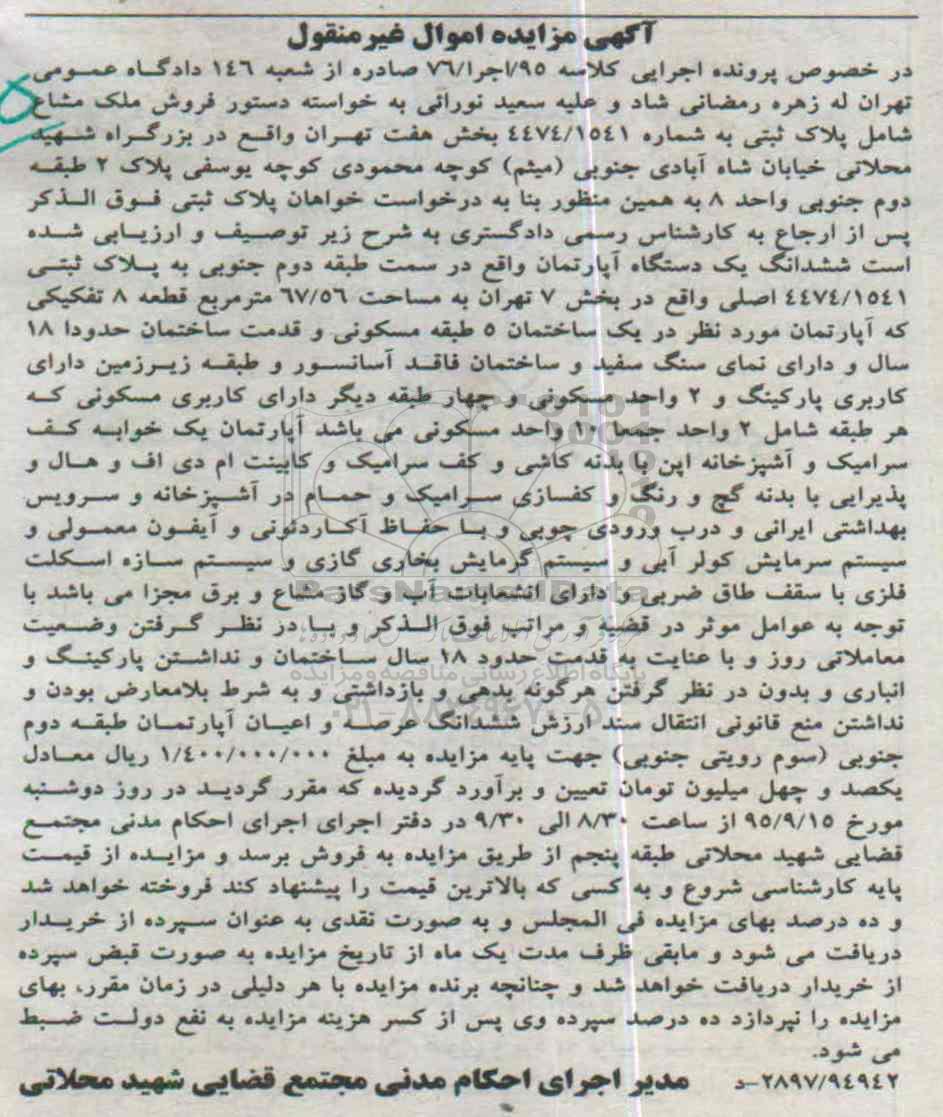 آگهی مزایده اموال غیرمنقول
در خصوص پرونده اجرایی کلاسه ۹۵/اجرا/۷۶ صادره از شعبه ۱۴۶ دادگاه عمومی
تهران له زهره رمضانی شاد و علیه سعید نورائی به خواسته دستور فروش ملک مشاع
شامل پلاک ثبتی به شماره ۴۴۷۴/۱۵۴۱ بخش هفت تهران واقع در بزرگراه شهید
محلاتی خیابان شاه آبادی جنوبی (میثم) کوچه محمودی کوچه یوسفی پلاک ۲ طبقه
دوم جنوبی واحد ۸ به همین منظور بنا به درخواست خواهان پلاک ثبتی فوق الذکر
پس از ارجاع به کارشناس رسمی دادگستری به شرح زیر توصیف و ارزیابی شده
است ششدانگ یک دستگاه آپارتمان واقع در سمت طبقه دوم جنوبی به پلاک ثبتی
۴۴۷۴/۱۵۴۱ اصلی واقع در بخش ۷ تهران به مساحت ۶۷/۵۶ مترمربع قطعه ۸ تفکیکی
که آپارتمان مورد نظر در یک ساختمان ۵ طبقه مسکونی و قدمت ساختمان حدودا ۱۸
سال و دارای نمای سنگ سفید و ساختمان فاقد آسانسور و طبقه زیرزمین دارای
کاربری پارکینگ و ۲ واحد مسکونی و چهار طبقه دیگر دارای کاربری مسکونی که
هر طبقه شامل ۲ واحد جمعا ۱۰ واحد مسکونی می باشد آپارتمان یک خوابه کف
سرامیک و آشپزخانه اپن با بدنه کاشی و کف سرامیک و کابینت ام دی اف و هال و
پذیرایی با بدنه گچ و رنگ و کفسازی سرامیک و حمام در آشپزخانه و سرویس
بهداشتی ایرانی و درب ورودی چوبی و با حفاظ آکاردئونی و آیفون معمولی و
سیستم سرمایش کولر آبی و سیستم گرمایش بخاری گازی و سیستم سازه اسکلت
فلزی با سقف طاق ضربی و دارای انشعابات آب و گاز مشاع و برق مجزا می باشد با
توجه به عوامل موثر در قضیه و مراتب فوق الذکر و با در نظر گرفتن وضعیت
معاملاتی روز و با عنایت به قدمت حدود ۱۸ سال ساختمان و نداشتن پارکینگ و
انباری و بدون در نظر گرفتن هرگونه بدهی و بازداشتی و به شرط بلامعارض بودن و
نداشتن منع قانونی انتقال سند ارزش ششدانگ عرصه و اعیان آپارتمان طبقه دوم
جنوبی (سوم رویتی جنوبی) جهت پایه مزایده به مبلغ ۱/۴۰۰/۰۰۰/۰۰۰ ریال معادل
یکصد و چهل میلیون تومان تعیین و برآورد گردیده که مقرر گردید در روز دوشنبه
مورخ ۹۵/۹/۱۵ از ساعت ۸/۳۰ الی ۹/۳۰ در دفتر اجرای اجرای احکام مدنی مجتمع
قضایی شهید محلاتی طبقه پنجم از طریق مزایده به فروش برسد و مزایده از قیمت
پایه کارشناسی شروع و به کسی که بالاترین قیمت را پیشنهاد کند فروخته خواهد شد
و ده درصد بهای مزایده فی المجلس و به صورت نقدی به عنوان سپرده از خریدار
دریافت می شود و مابقی ظرف مدت یک ماه از تاریخ مزایده به صورت قبض سپرده
از خریدار دریافت خواهد شد و چنانچه برنده مزایده با هر دلیلی در زمان مقرر، بهای
مزایده را نپردازد ده درصد سپرده وی پس از کسر هزینه مزایده به نفع دولت ضبط
می شود.
۲۸۹۷/۹۴۹۴۲-د مدیر اجرای احکام مدنی مجتمع قضایی شهید محلاتی
ParsNamadData
پایگاه اطلاع رسانی مناقصه و مزایده